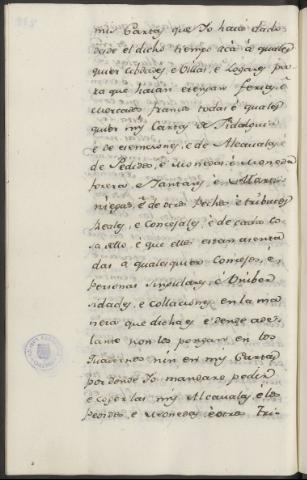 mis Cartas que Io haia dado
desde el dicho tiempo acá à quales
quier Cibdades, è Villas, è Logares pa
ra que haian è tengan ferias, è
Mercados francos todas è quales
quier mis Cartas de Fidalguia
è de esenciones, è de Alcavalas, è
de Pedidos, è Monedas, è Moneda
forera, è Yantares, è Marti
niegas, è de otros Pechos, è tributos
Reales, e Concejales, è de cada co
sa dello, è que ellas esten asenta
das à qualesquier Concejos, è
Personas singulares, è Univer
sidades, è collaciones en la ma
nera que dicha es è dende ade
lante non los pongan en los
Quadernos nin en mis Cartas
por donde Io mandare pedir
è coger las mis Alcavalas, è los
Pedidos, è Monedas è otros Tri-